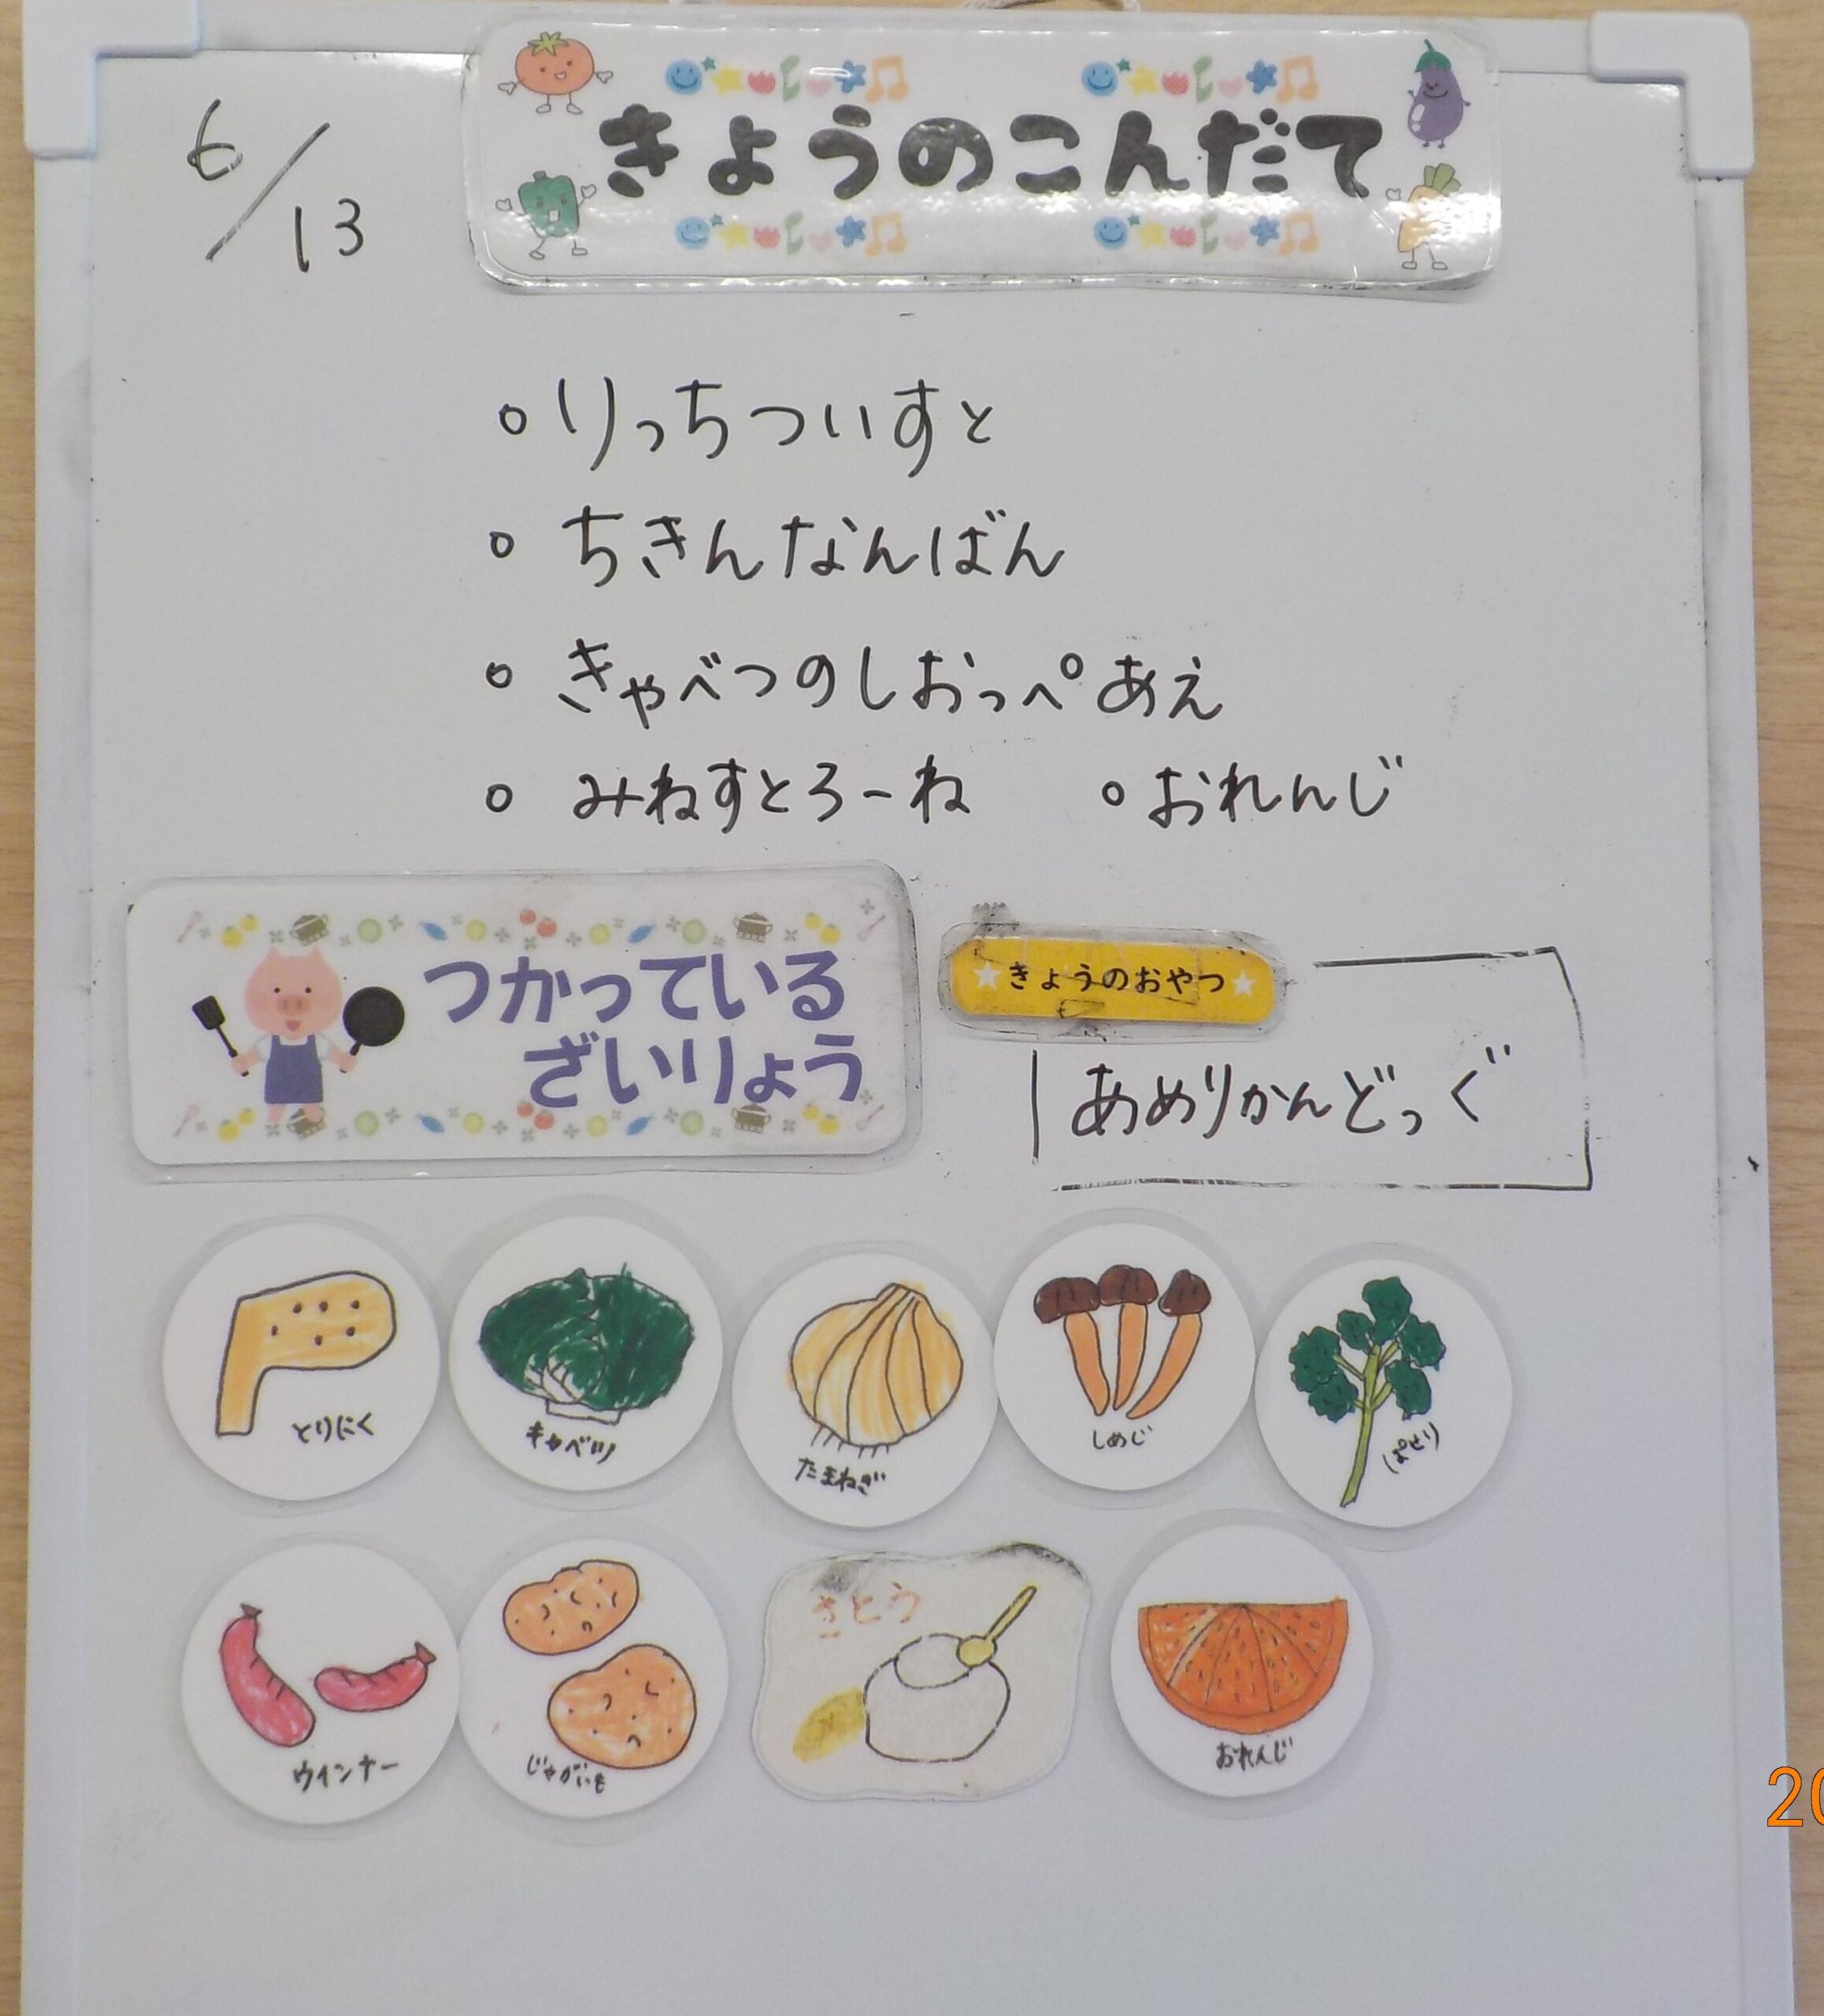 6/13
きょうのこんだて
○りっちついすと
○ちきんなんばん
○きゃべつのしおっぺあえ
○みねすとろーね ○おれんじ
つかっている
ざいりょう
★きょうのおやつ★
あめりかんどっぐ
とりにく
キャベツ
たまねぎ
しめじ
ぱせり
ウインナー
じゃがいも
さとう
おれんじ
20